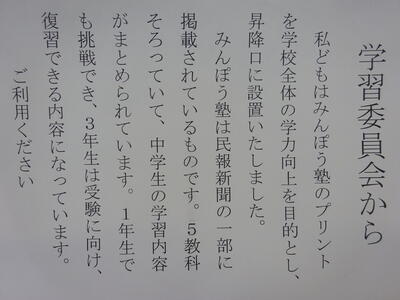 学習委員会から
私どもはみんぽう塾のプリント
を学校全体の学力向上を目的とし、
昇降口に設置いたしました。
みんぽう塾は民報新聞の一部に
掲載されているものです。５教科
そろっていて、中学生の学習内容
がまとめられています。１年生で
も挑戦でき、３年生は受験に向け、
復習できる内容になっています。
ご利用ください